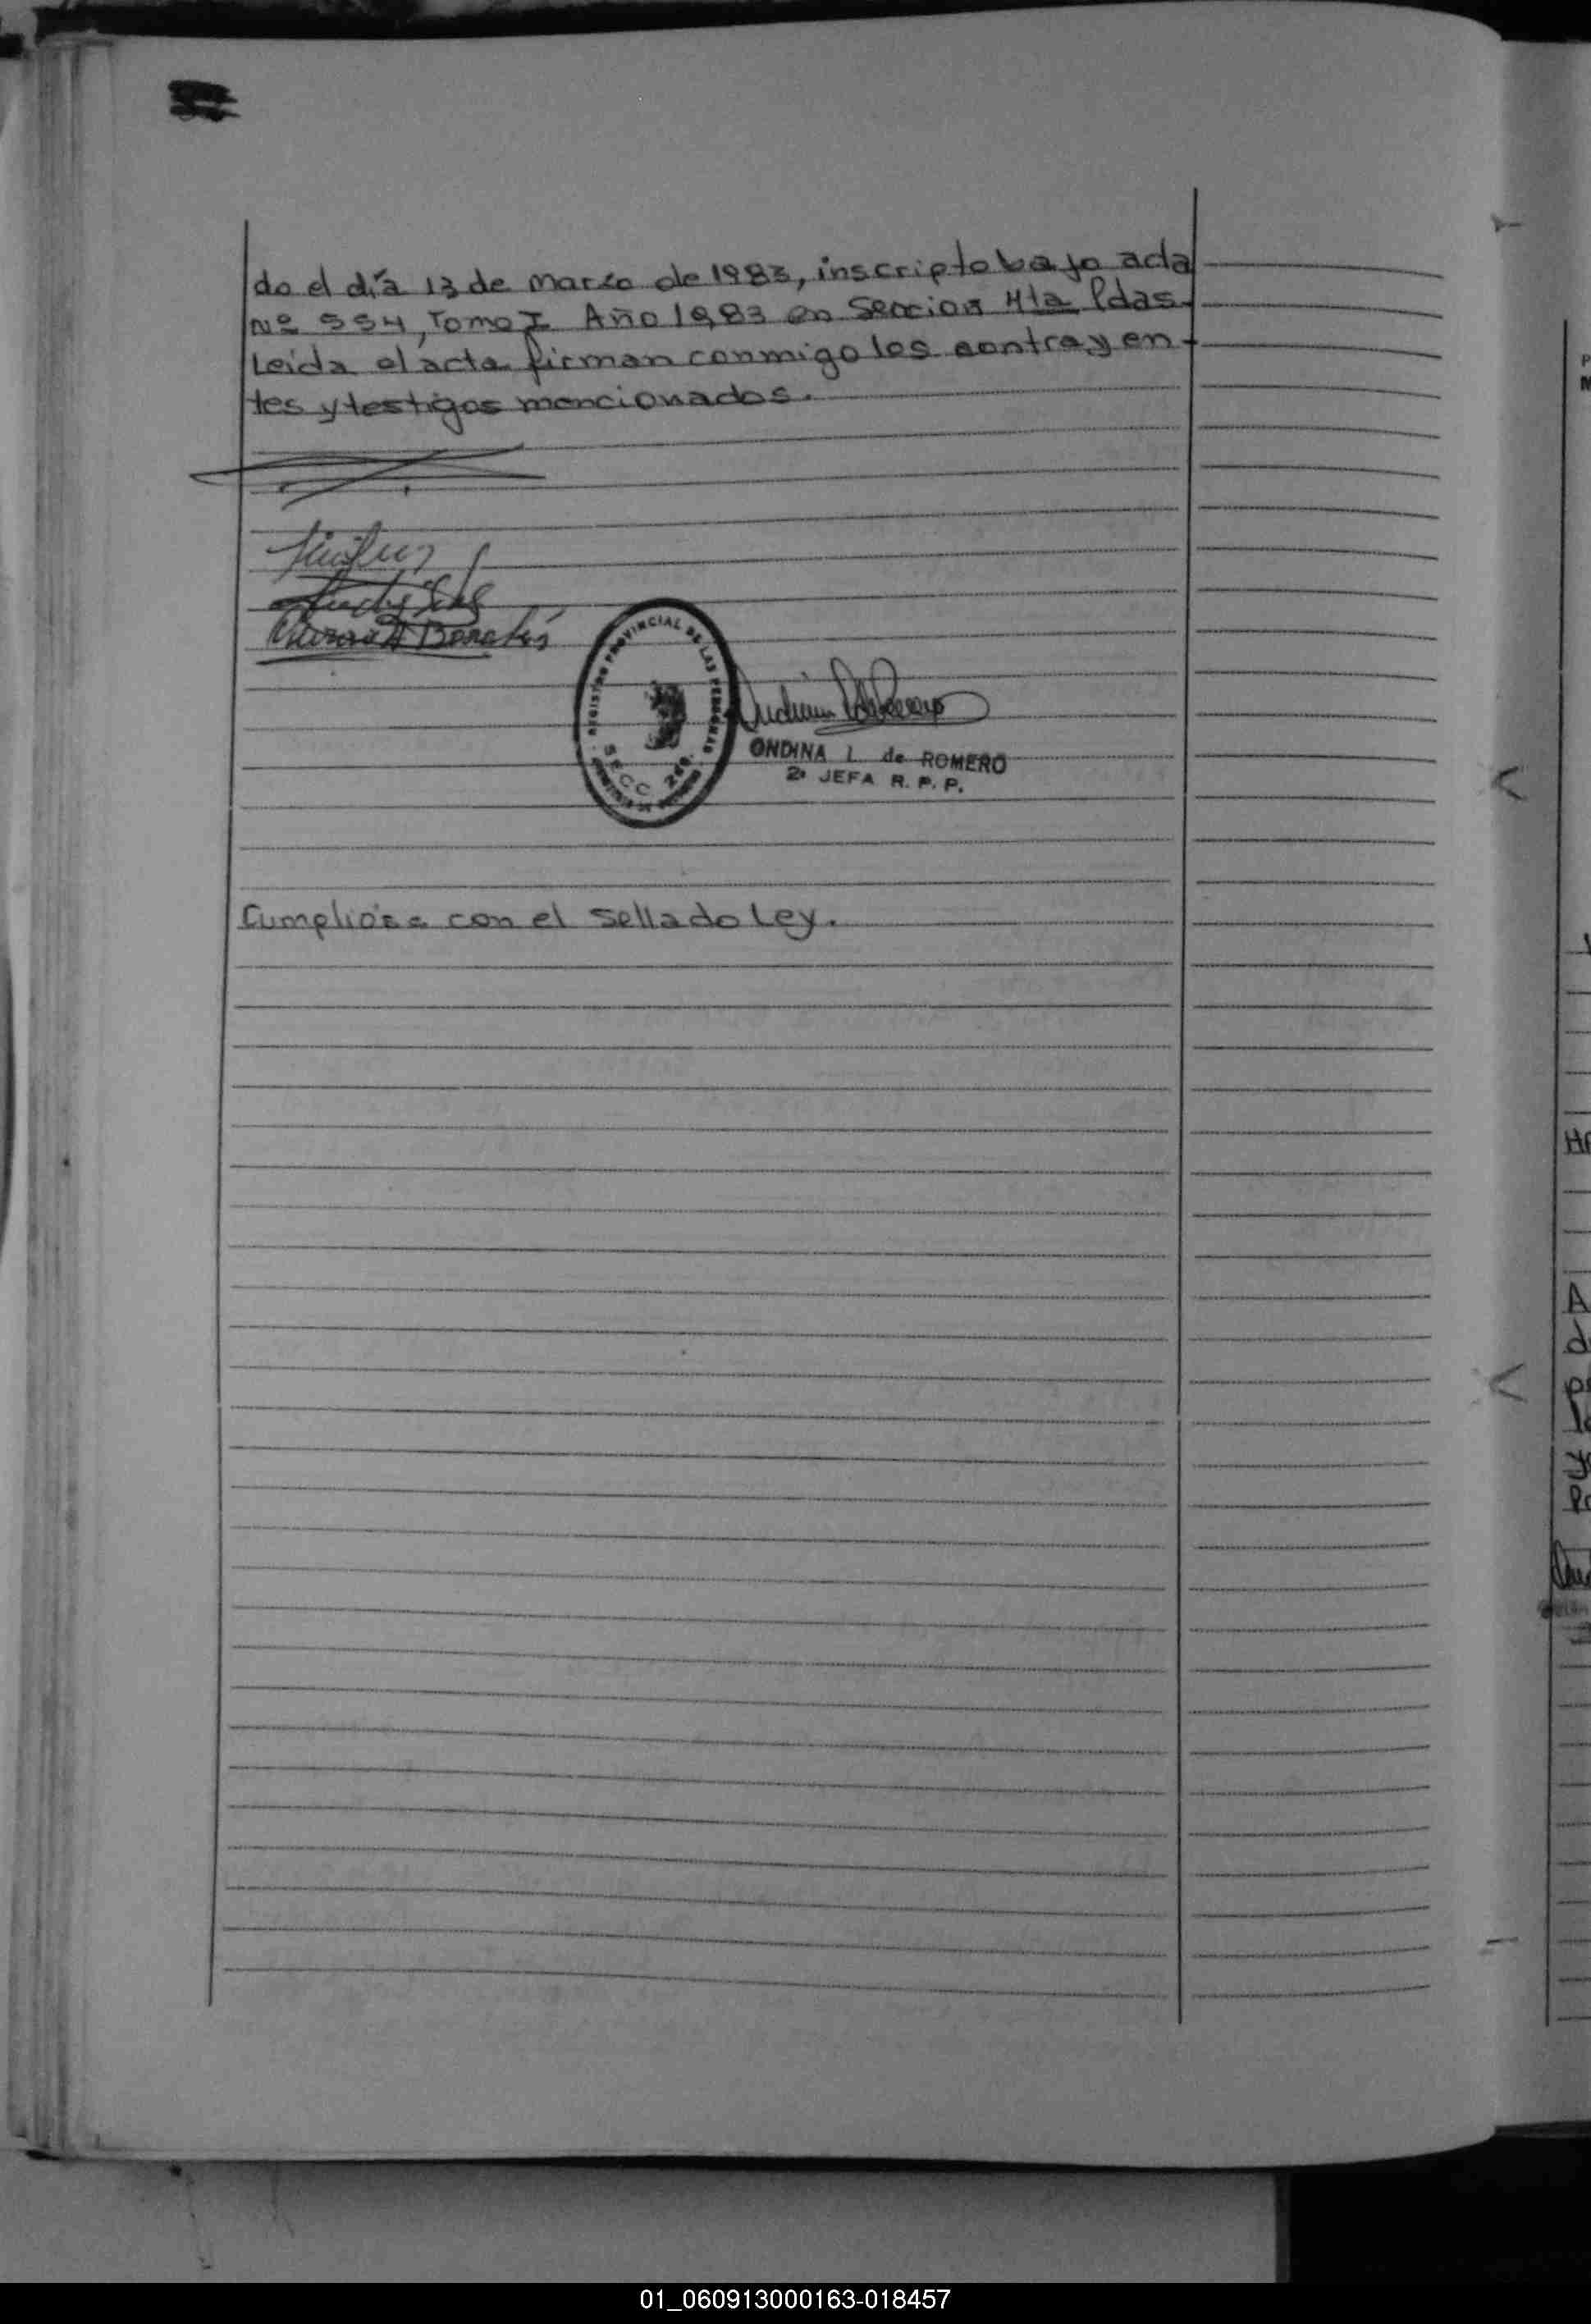 do el día 13 de marzo de 1983, inscripto bajo acta
Nº 554, Tomo I Año 1983 en Seccion 4ta Pdas.
Leída el acta firman conmigo los contrayen-
tes y testigos mencionados.
REGISTRO PROVINCIAL DE LAS PERSONAS
SECC.
ONDINA L. de ROMERO
2ª JEFA R. P. P.
Cumplióse con el sellado Ley.
01_060913000163-018457